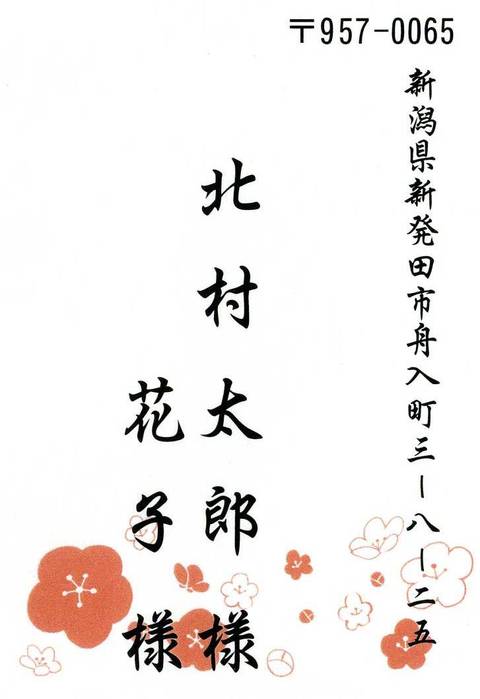 〒957-0065
新潟県新発田市舟入町三ー八ー二五
北村太郎様
花子様